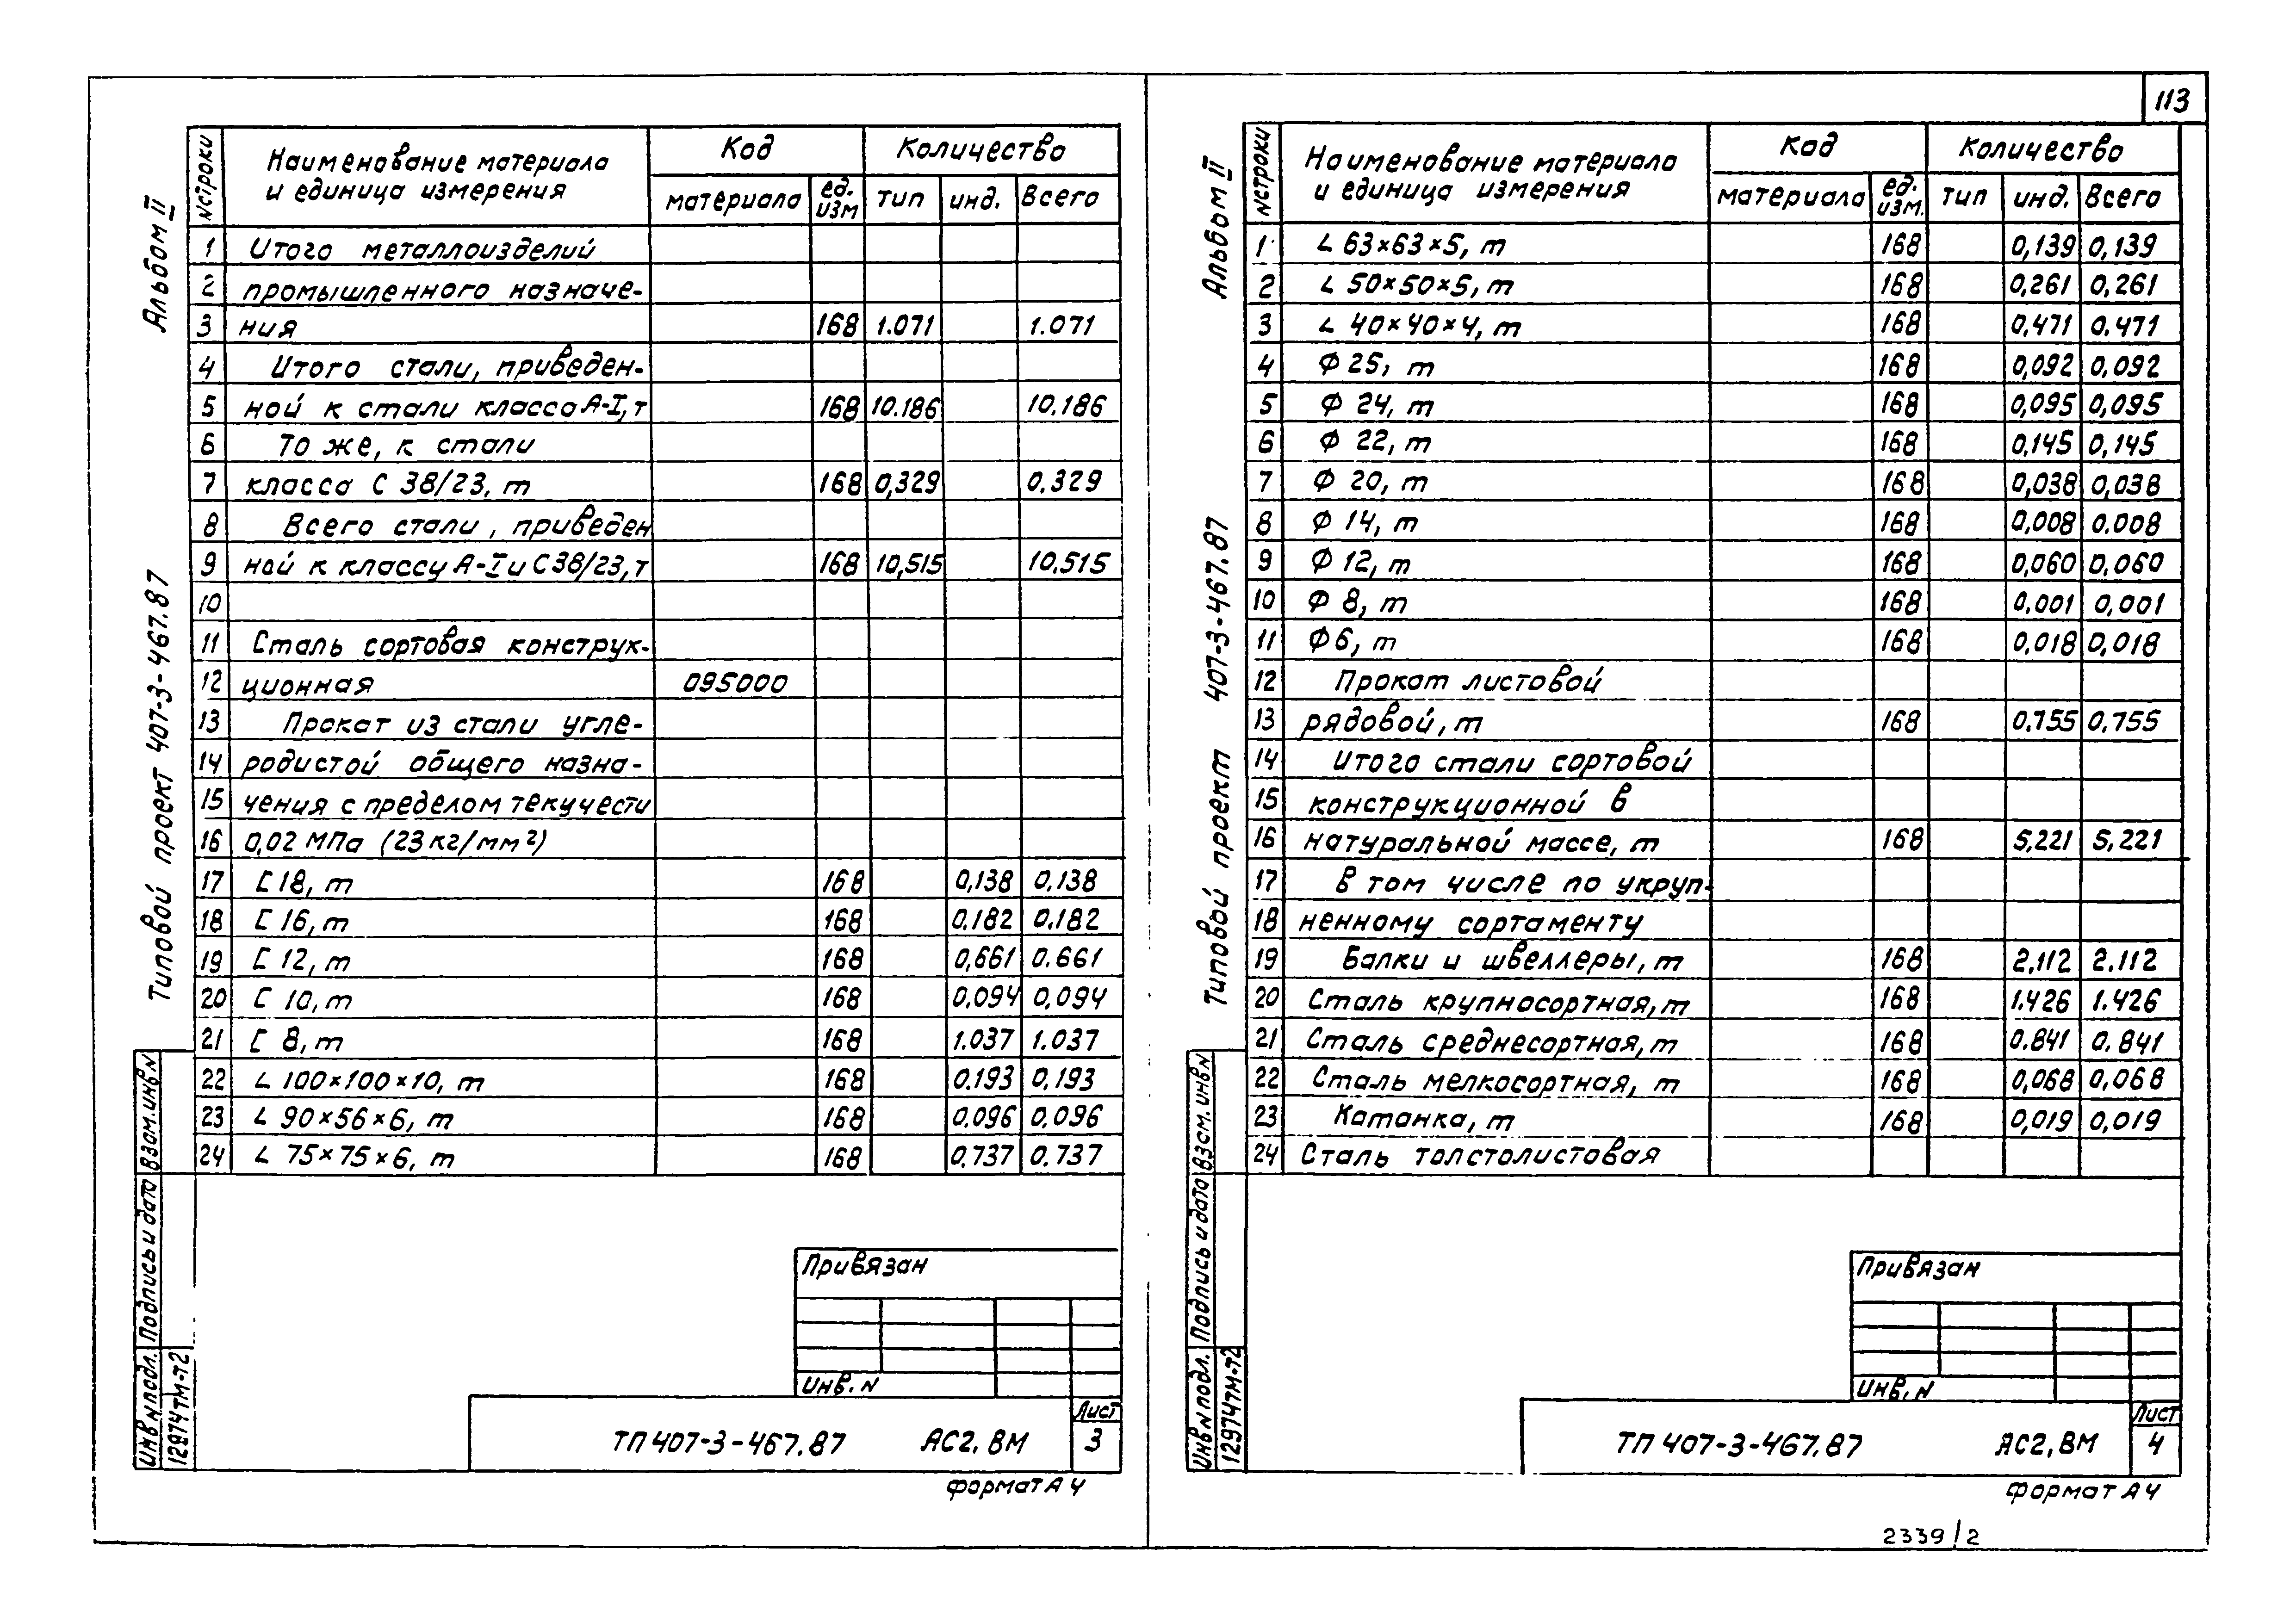 113
Альбом II
Типовой проект 407-3-467.87
N строки | Наименование материала и единица измерения | Код | Количество
материала | ед. изм | тип | инд. | Всего
1 Итого металлоизделий
2 промышленного назначе-
3 ния 168 1.071 1.071
4 Итого стали, приведен-
5 ной к стали класса А-I, т 168 10.186 10.186
6 То же, к стали
7 класса С 38/23, т 168 0,329 0.329
8 Всего стали, приведен
9 ной к классу А-I и С 38/23, т 168 10,515 10.515
10
11 Сталь сортовая конструк-
12 ционная 095000
13 Прокат из стали угле-
14 родистой общего назна-
15 чения с пределом текучести
16 0,02 МПа (23 кг/мм²)
17 [ 18, т 168 0,138 0.138
18 [ 16, т 168 0.182 0.182
19 [ 12, т 168 0,661 0.661
20 [ 10, т 168 0.094 0,094
21 [ 8, т 168 1.037 1.037
22 L 100×100×10, т 168 0.193 0,193
23 L 90×56×6, т 168 0.096 0.096
24 L 75×75×6, т 168 0.737 0.737
Взам. инв N
Подпись и дата
Инв N подл.
12974тм-т2
Привязан
Инв. N
ТП 407-3-467.87 АС2, ВМ
Лист
3
формат А4
Альбом II
Типовой проект 407-3-467.87
N строки | Наименование материала и единица измерения | Код | Количество
материала | ед. изм. | тип | инд. | Всего
1 L 63×63×5, т 168 0,139 0,139
2 L 50×50×5, т 168 0,261 0,261
3 L 40×40×4, т 168 0,471 0.471
4 Ф 25, т 168 0,092 0,092
5 Ф 24, т 168 0,095 0,095
6 Ф 22, т 168 0,145 0,145
7 Ф 20, т 168 0,038 0,038
8 Ф 14, т 168 0,008 0.008
9 Ф 12, т 168 0,060 0,060
10 Ф 8, т 168 0.001 0,001
11 Ф 6, т 168 0,018 0,018
12 Прокат листовой
13 рядовой, т 168 0.755 0.755
14 Итого стали сортовой
15 конструкционной в
16 натуральной массе, т 168 5,221 5,221
17 в том числе по укруп-
18 ненному сортаменту
19 Балки и швеллеры, т 168 2,112 2.112
20 Сталь крупносортная, т 168 1.426 1.426
21 Сталь среднесортная, т 168 0.841 0.841
22 Сталь мелкосортная, т 168 0,068 0,068
23 Катанка, т 168 0,019 0,019
24 Сталь толстолистовая
Взам. инв N
Подпись и дата
Инв N подл.
12974тм-т2
Привязан
Инв, N
ТП 407-3-467.87 АС2, ВМ
Лист
4
формат А4
2339/2